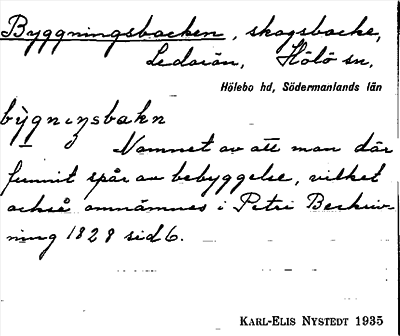 Byggningsbacken, skogsbacke,
Ledarön, Hölö sn,
Hölebo hd, Södermanlands län
bỳgningsbakn
Namnet av att man där
funnit spår av bebyggelse, vilket
också omnämnes i Petri Beskriv-
ning 1828 sid 6.
KARL-ELIS NYSTEDT 1935